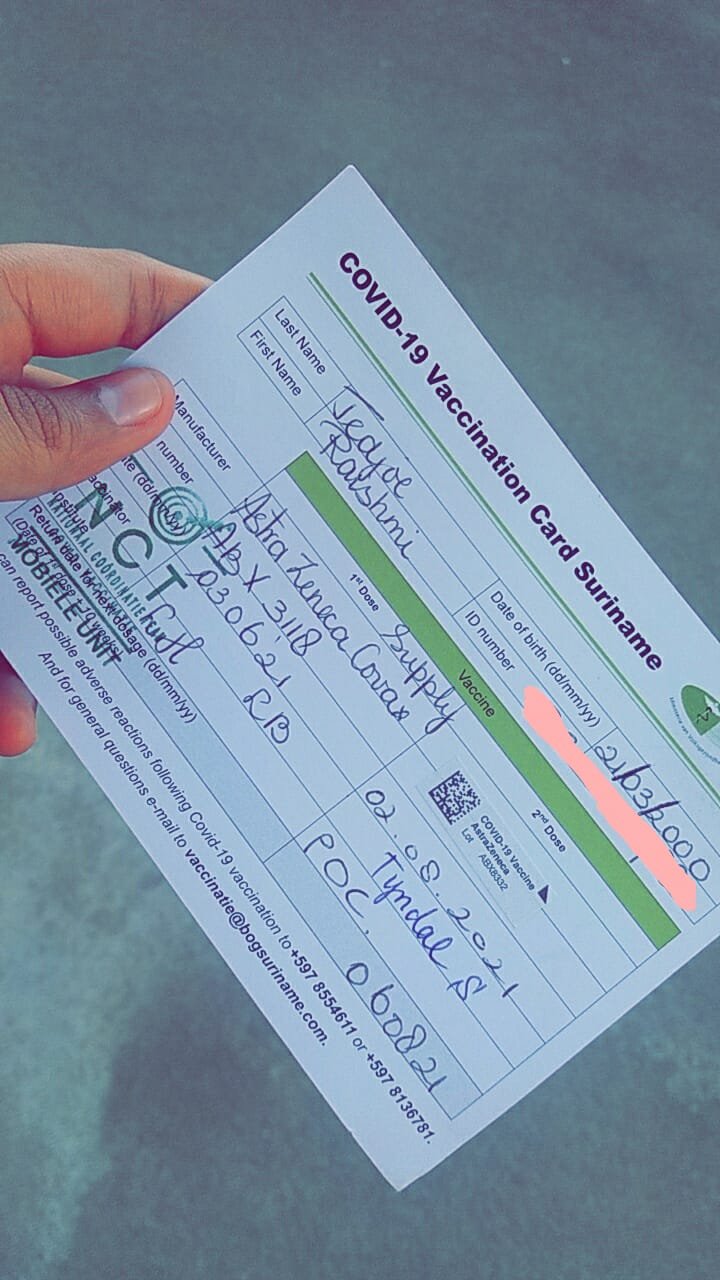 COVID-19 Vaccination Card Suriname
Last Name Tedjoe
First Name Rakshmi
Date of birth (dd/mm/yy) 21/03/2000
ID number
Vaccine
1st Dose 2nd Dose
Manufacturer Astra Zeneca Covax Supply
COVID-19 Vaccine
AstraZeneca
Lot ABX8332
number ABX 3118
(dd/mm/yy) 030621 02.08.2021
RB Tyndal S
POC.
Return date for next dosage (dd/mm/yy) 060821
can report possible adverse reactions following Covid-19 vaccination to +597 8554611 or +597 8136781.
And for general questions e-mail to vaccinatie@bogsuriname.com.
NCT
MOBIELE UNIT